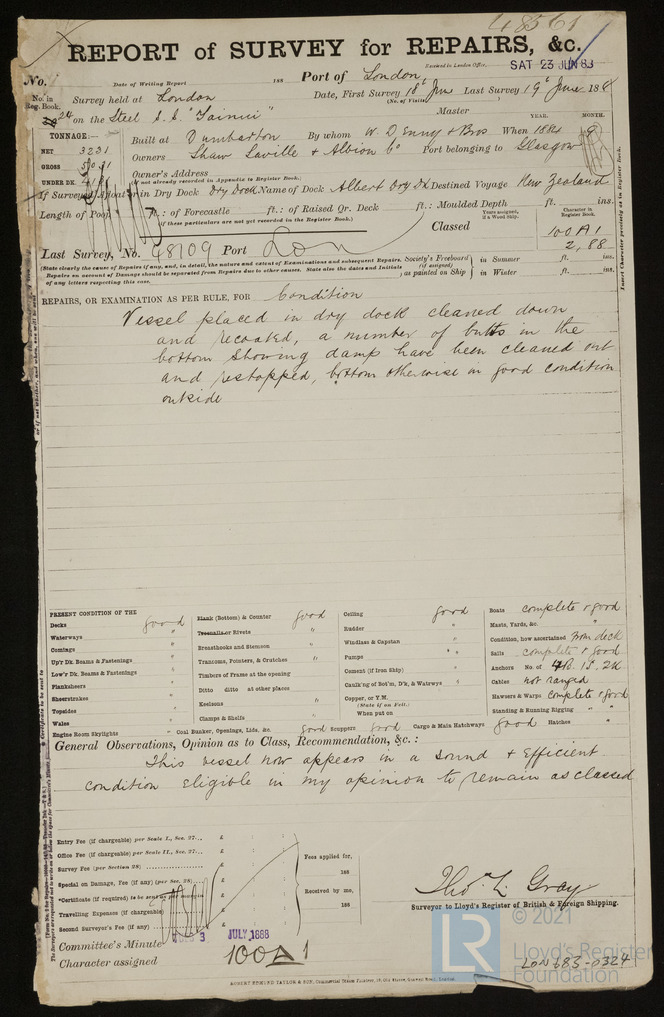 48561
REPORT of SURVEY for REPAIRS, &c.
Received in London Office, SAT 23 JUN 88
No. Date of Writing Report 188 Port of London
No. in Reg. Book. Survey held at London Date, First Survey 18 Jun Last Survey 19 June 188
(No. of Visits)
24 on the Steel S.S. "Tainui" Master
TONNAGE:— YEAR. MONTH.
NET 3231 Built at Dumbarton By whom W. Denny & Bros When 1884 9
GROSS Owners Shaw Saville & Albion Co Port belonging to Glasgow
UNDER DK. Owner's Address
(If not already recorded in Appendix to Register Book.)
If Surveyed Afloat or in Dry Dock Dry Dock Name of Dock Albert Dry Dk Destined Voyage New Zealand
Length of Poop ft.: of Forecastle ft.: of Raised Qr. Deck ft.: Moulded Depth ft. ins.
(If these particulars are not yet recorded in the Register Book.)
Years assigned, if a Wood Ship. Character in Register Book.
Classed 100 A1
2,88
Last Survey, No. 48109 Port Lon
(State clearly the cause of Repairs if any, and, in detail, the nature and extent of Examinations and subsequent Repairs. Repairs on account of Damage should be separated from Repairs due to other causes. State also the dates and Initials of any letters respecting this case.
Society's Freeboard (if assigned) as painted on Ship in Summer ft. ins.
in Winter ft. ins.
Insert Character precisely as in Register Book.
REPAIRS, OR EXAMINATION AS PER RULE, FOR Condition
Vessel placed in dry dock cleaned down
and recoated, a number of butts in the
bottom showing damp have been cleaned out
and restopped, bottom otherwise in good condition
outside
PRESENT CONDITION OF THE
Decks good
Waterways "
Comings "
Up'r Dk. Beams & Fastenings "
Low'r Dk. Beams & Fastenings "
Planksheers "
Sheerstrakes "
Topsides "
Wales "
Engine Room Skylights "
Plank (Bottom) & Counter good
Treenails or Rivets "
Breasthooks and Stemson "
Transoms, Pointers, & Crutches "
Timbers of Frame at the opening
Ditto ditto at other places
Keelsons "
Clamps & Shelfs "
Coal Bunker, Openings, Lids, &c. good Scuppers good Cargo & Main Hatchways good Hatches "
Ceiling good
Rudder "
Windlass & Capstan "
Pumps "
Cement (if Iron Ship) "
Caulk'ng of Bot'm, D'k, & Watrways "
Copper, or Y.M.
(State if on Felt.)
When put on
Boats complete & good
Masts, Yards, &c. "
Condition, how ascertained from deck
Sails complete & good
Anchors No. of 4B. 1S. 2K
Cables not ranged
Hawsers & Warps complete & good
Standing & Running Rigging " "
General Observations, Opinion as to Class, Recommendation, &c.:
This vessel now appears in a sound & Efficient
condition eligible in my opinion to remain as classed
Entry Fee (if chargeable) per Scale I., Sec. 27... £
Office Fee (if chargeable) per Scale II., Sec. 27... £
Survey Fee (per Section 28) £
Special on Damage, Fee (if any) (per Sec. 28) £
*Certificate (if required) to be sent as per margin £
Travelling Expenses (if chargeable) £
Second Surveyor's Fee (if any) £
Fees applied for, 188
Received by me, 188
Thos. L. Gray
Surveyor to Lloyd's Register of British & Foreign Shipping.
Committee's Minute TUES 3 JULY 1888
Character assigned 100A1
ROBERT EDMUND TAYLOR & SON
© 2021
LR
Lloyd's Register
Foundation
LON 683-0324